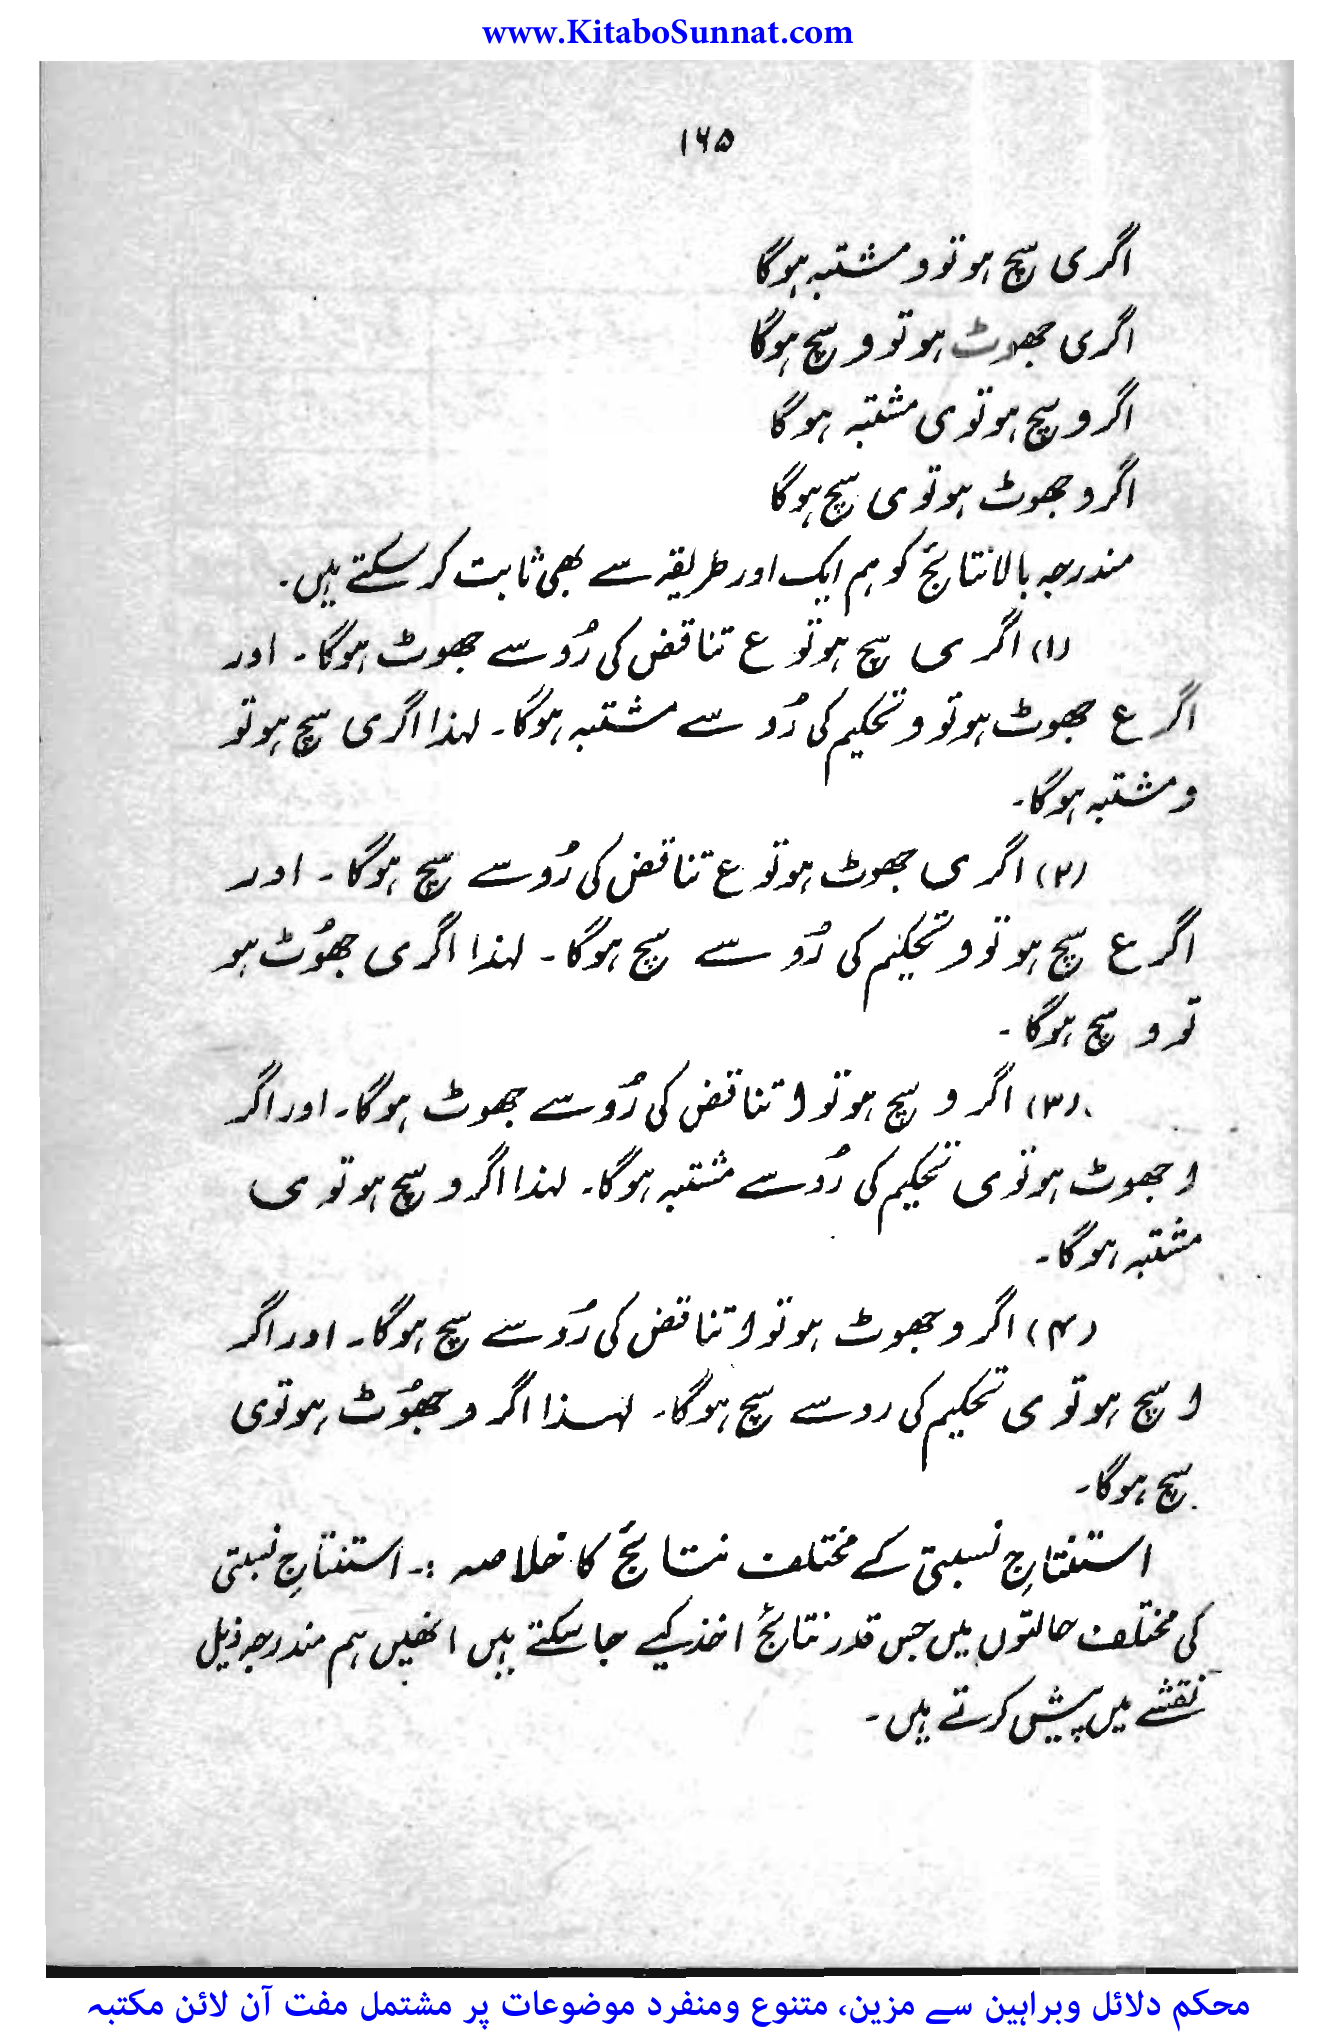 www.KitaboSunnat.com
۱۶۵
اگر ی سچ ہو تو و مشتبہ ہوگا
اگر ی جھوٹ ہو تو و سچ ہوگا
اگر و سچ ہو تو ی مشتبہ ہوگا
اگر و جھوٹ ہو تو ی سچ ہوگا
مندرجہ بالا نتائج کو ہم ایک اور طریقہ سے بھی ثابت کر سکتے ہیں۔
(۱) اگر ی سچ ہو تو ع تناقض کی رُو سے جھوٹ ہوگا۔ اور
اگر ع جھوٹ ہو تو و تحکیم کی رُو سے مشتبہ ہوگا۔ لہذا اگر ی سچ ہو تو
و مشتبہ ہوگا۔
(۲) اگر ی جھوٹ ہو تو ع تناقض کی رُو سے سچ ہوگا۔ اور
اگر ع سچ ہو تو و تحکیم کی رُو سے سچ ہوگا۔ لہذا اگر ی جھُوٹ ہو
تو و سچ ہوگا۔
(۳) اگر و سچ ہو تو ا تناقض کی رُو سے جھوٹ ہوگا۔ اور اگر
ا جھوٹ ہو تو ی تحکیم کی رُو سے مشتبہ ہوگا۔ لہذا اگر و سچ ہو تو ی
مشتبہ ہوگا۔
(۴) اگر و جھوٹ ہو تو ا تناقض کی رُو سے سچ ہوگا۔ اور اگر
ا سچ ہو تو ی تحکیم کی رو سے سچ ہوگا۔ لہذا اگر و جھُوٹ ہو تو ی
سچ ہوگا۔
استنتاجِ نسبتی کے مختلف نتائج کا خلاصہ :۔ استنتاجِ نسبتی
کی مختلف حالتوں میں جس قدر نتائج اخذ کیے جا سکتے ہیں انھیں ہم مندرجہ ذیل
نقشے میں پیش کرتے ہیں۔
محکم دلائل وبراہین سے مزین، متنوع ومنفرد موضوعات پر مشتمل مفت آن لائن مکتبہ